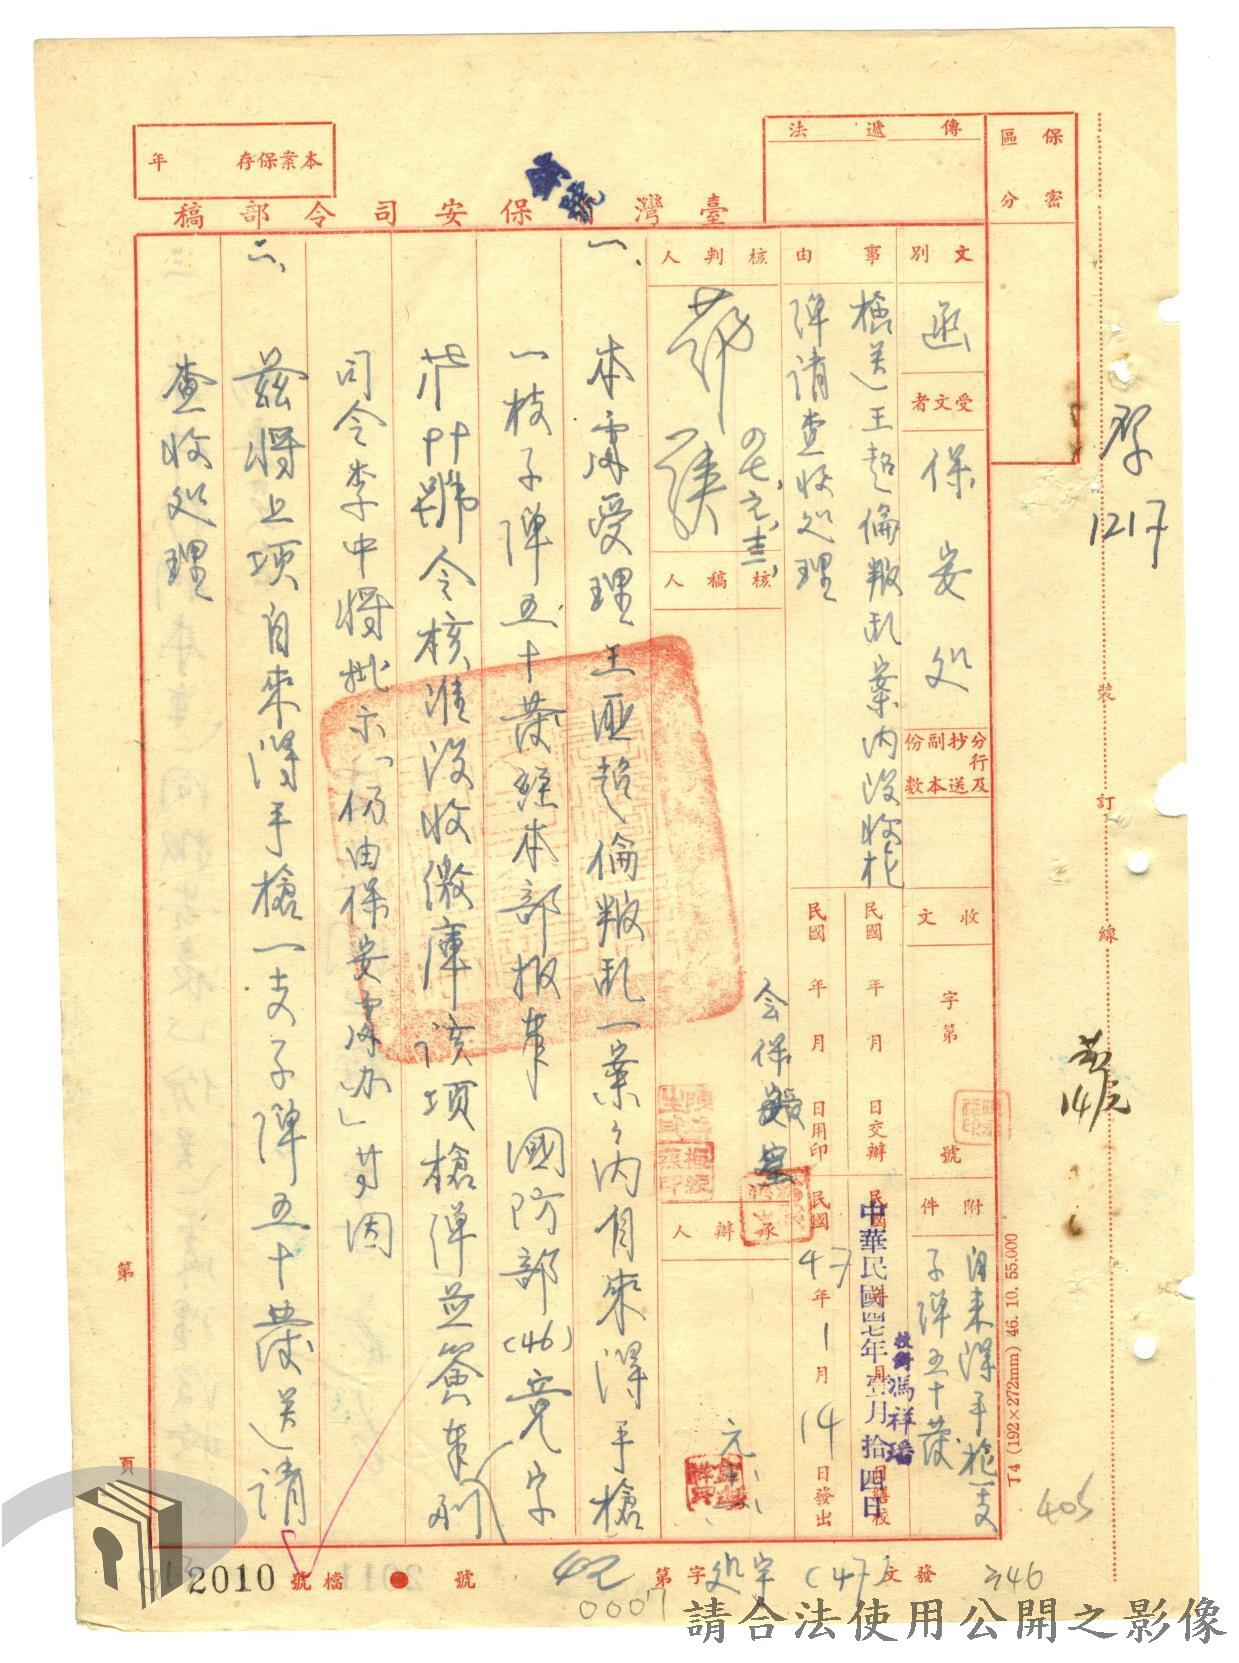 保密
區分
傳遞法
本案保存 年
臺灣 保安司令部稿
文別
函
受文者
保安処
分行及抄送副本份數
事由
檢送王超倫叛乱案內没收枪
弹請查收処理
收文
字第 號
附件
自来得手枪一支
子弹五十發
民國 年 月 日交辦
民國 年 月 日用印
中華民國四七年壹月拾四日
校對馮祥璠
民國47年1月14日發出
核判人
核稿人
会保
承辦人
一、
本處受理王亚超倫叛乱一案內自來得手槍
一枝子弹五十發經本部报奉 國防部(46)竞字
號令核准没收繳庫該項槍弹並簽奉
司令李中將批示「仍由保安處办」
二、
茲將上項自來得手槍一支子弹五十發送請
查收処理
裝
訂
線
1217
14/元
T4 (192×272mm) 46. 10. 55.000
405
746
發文
(47)
字第
0007
號
檔號
2010
第 頁
請合法使用公開之影像